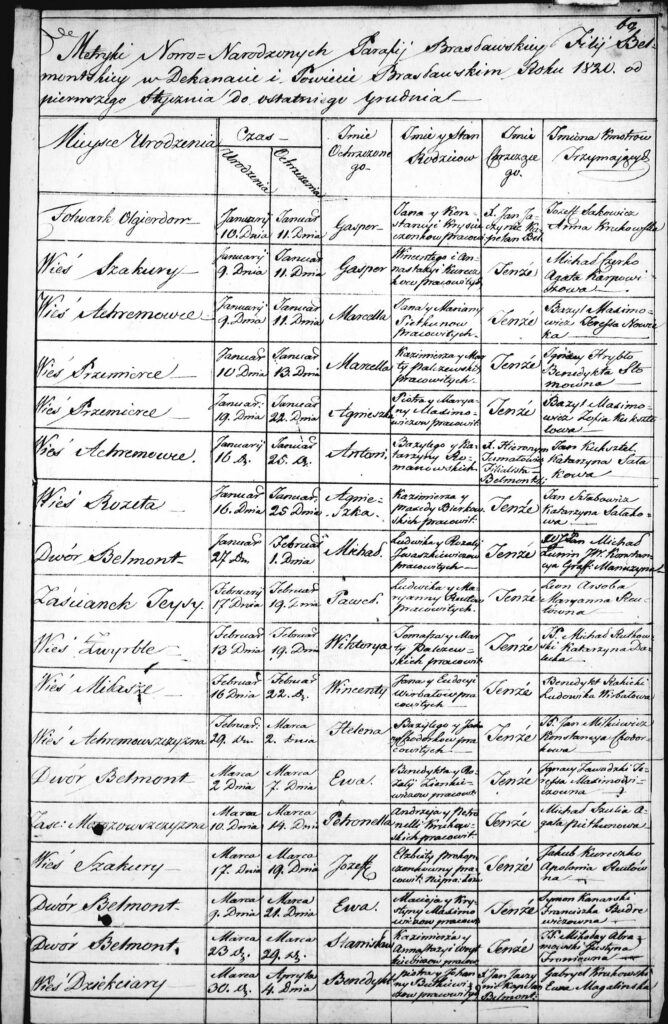 62
Metryki Nowo=Narodzonych Parafij Brasławskiey Filij Bel-
montskiey w Dekanacie i Powiecie Brasławskim Roku 1820. od
pierwszego Stycznia do ostatniego Grudnia
Mieysce Urodzenia
Czas
Urodzenia
Ochrzczenia
Imie
Ochrzczone
go.
Imie y Stan
Rodzicow
Imie
Chrzczące
go.
Imiona Kmotrow
Trzymaiących
Folwark Olgierdow
Januarij
10. Dnia
Januar
11. Dnia
Gasper
Jana y Kon-
stancyi
pracowit
X. Jan
Kapelan Bel.
Jozeff Sakowicz
Anna Krukowska
Wieś Szakury
Januarij
9. Dnia
Januar
11. Dnia
Gasper
Wincentego i An-
nastazyi
pracowitych
Tenże
Michał Szyrko
Agata Karpowi-
czowa
Wieś Achremowce
Januarij
9. Dnia
Januar
11. Dnia
Marcella
Jana y Marianny
Pietkunow
pracowitych.
Tenże
Bazyl Maximo-
wicz Teressa Nowic-
ka
Wieś Przemierce
Januar
10. Dnia
Januar
13. Dnia
Marcella
Kazimierza y Mar
ty Palczewskich
pracowitych.
Tenże
Ignacy Hryblo
Benedykta
Wieś Przemierce
Januar
19. Dnia
Januar
22. Dnia
Agnieszka
Piotra y Mary-
anny Maximo-
wiczow pracowit
Tenże
Bazyl Maximo-
wicz Zofia
Wieś Achremowce.
Januarij
16. D.
Januar
25. D.
Antoni.
Bazylego y Ka-
tarzyny Ro-
manowskich
X. Hieronym
Filialista
Belmontski
Jan Kucksztel
Katarzyna Sala
kowa
Wieś Rozeta
Januar
16. Dnia
Januar
25 Dnia
Agnie-
szka
Kazimierza y
Praxedy Bienkow
skich pracowit.
Tenże
Katarzyna Salako-
wa.
Dwór Belmont
Januar
27 Dn
Februar
1. Dnia
Michał.
Ludwika y Rozalij
Iwaszkiewiczow
pracowitych
Tenże
Michał
Zunin JW. Konstan-
cya Graf: Manuzzyna
Zaścianek Jeysy
Februarij
17 Dnia
Februar
19. Dnia
Paweł.
Ludwika y Ma-
ryanny
pracowitych.
Tenże
Leon
Maryanna
Wieś Zwyrble
Februar
13 Dnia
Februar
19. Dnia
Wiktorya
Tomasza y Mar-
ty Palczew-
skich pracowit
Tenże
JP. Michał Rutkow-
ski Katarzyna
Wieś Mikasze
Februar
16 Dnia
Februar
22. D.
Wincenty
Jana y Eudocyi
Wirbałow pra-
cowitych
Tenże
Benedykt
Ludowika Wirbałowa
Wieś Achremowszczyzna
Februar.
29. Dn
Marca
2. Dnia
Helena
Bazylego y
Chodorkow pra-
cowitych
Tenże
JP. Jan Milkiewicz
Konstancya Chodor-
kowa
Dwór Belmont
Marca
2 Dnia
Marca
7. Dnia
Ewa.
Benedykta y Ro-
zalij Zienkie-
wiczow pracowit
Tenże
Ignacy Zawadzki Te-
ressa Maximowi-
czowna
Zasc: Morzowszczyzna
Marca
10. Dnia
Marca
14. Dnia
Petronella
Andrzeja y Petro
nelli
pracowit
Tenże
Michał Szulia A-
gata Pietkunowa.
Wieś Szakury
Marca
17. Dnia
Marca
19. Dnia
Jozeff
Elzbiety
pracowit.
Tenże
Jakub Kureczko
Apolonia
na
Dwór Belmont.
Marca
9. Dnia
Marca
21. Dnia
Ewa.
Macieja y Kry-
styny Maximo
wiczow pracowit
Tenże
Symon Kanarski
Franciszka Budre
wiczowna
Dwór Belmont.
Marca
23 D.
Marca
29. D.
Stanisław
Kazimierza y
Annastazyi
pracowit
Tenże
JP. Mikołay Abra-
mowski Justyna
Wieś Dziekciary
Marca
30. D.
Apryla
4. Dnia
Benedykt
Piotra y Johan
ny Butkiewi-
czow pracowitych
X. Jan
Kapelan
Belmont:
Gabryel Krukowski
Ewa Magalinska